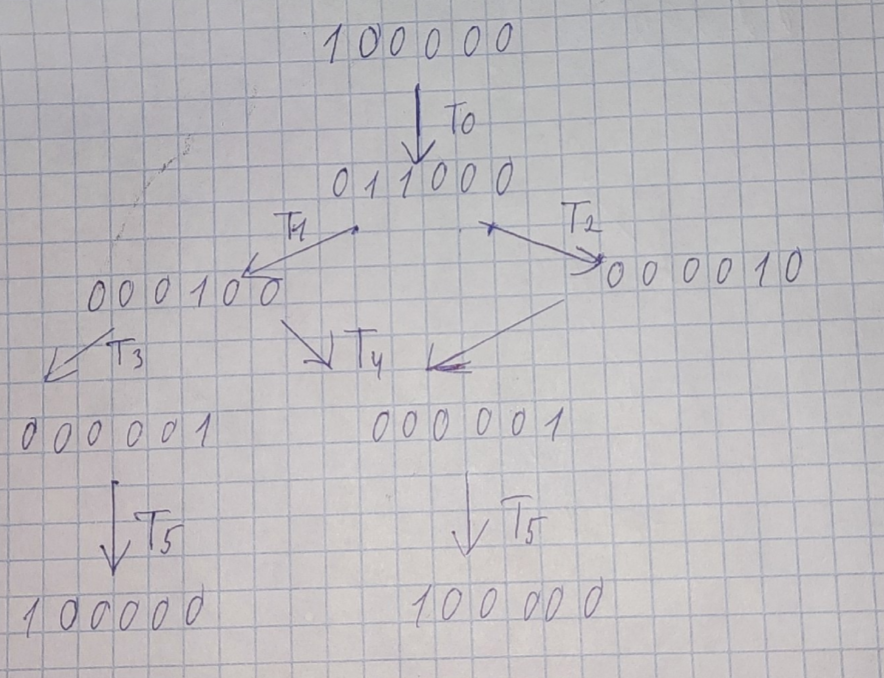 100000
T0
011000
T1 T2
000100 000010
T3 T4
000001 000001
T5 T5
100000 100000